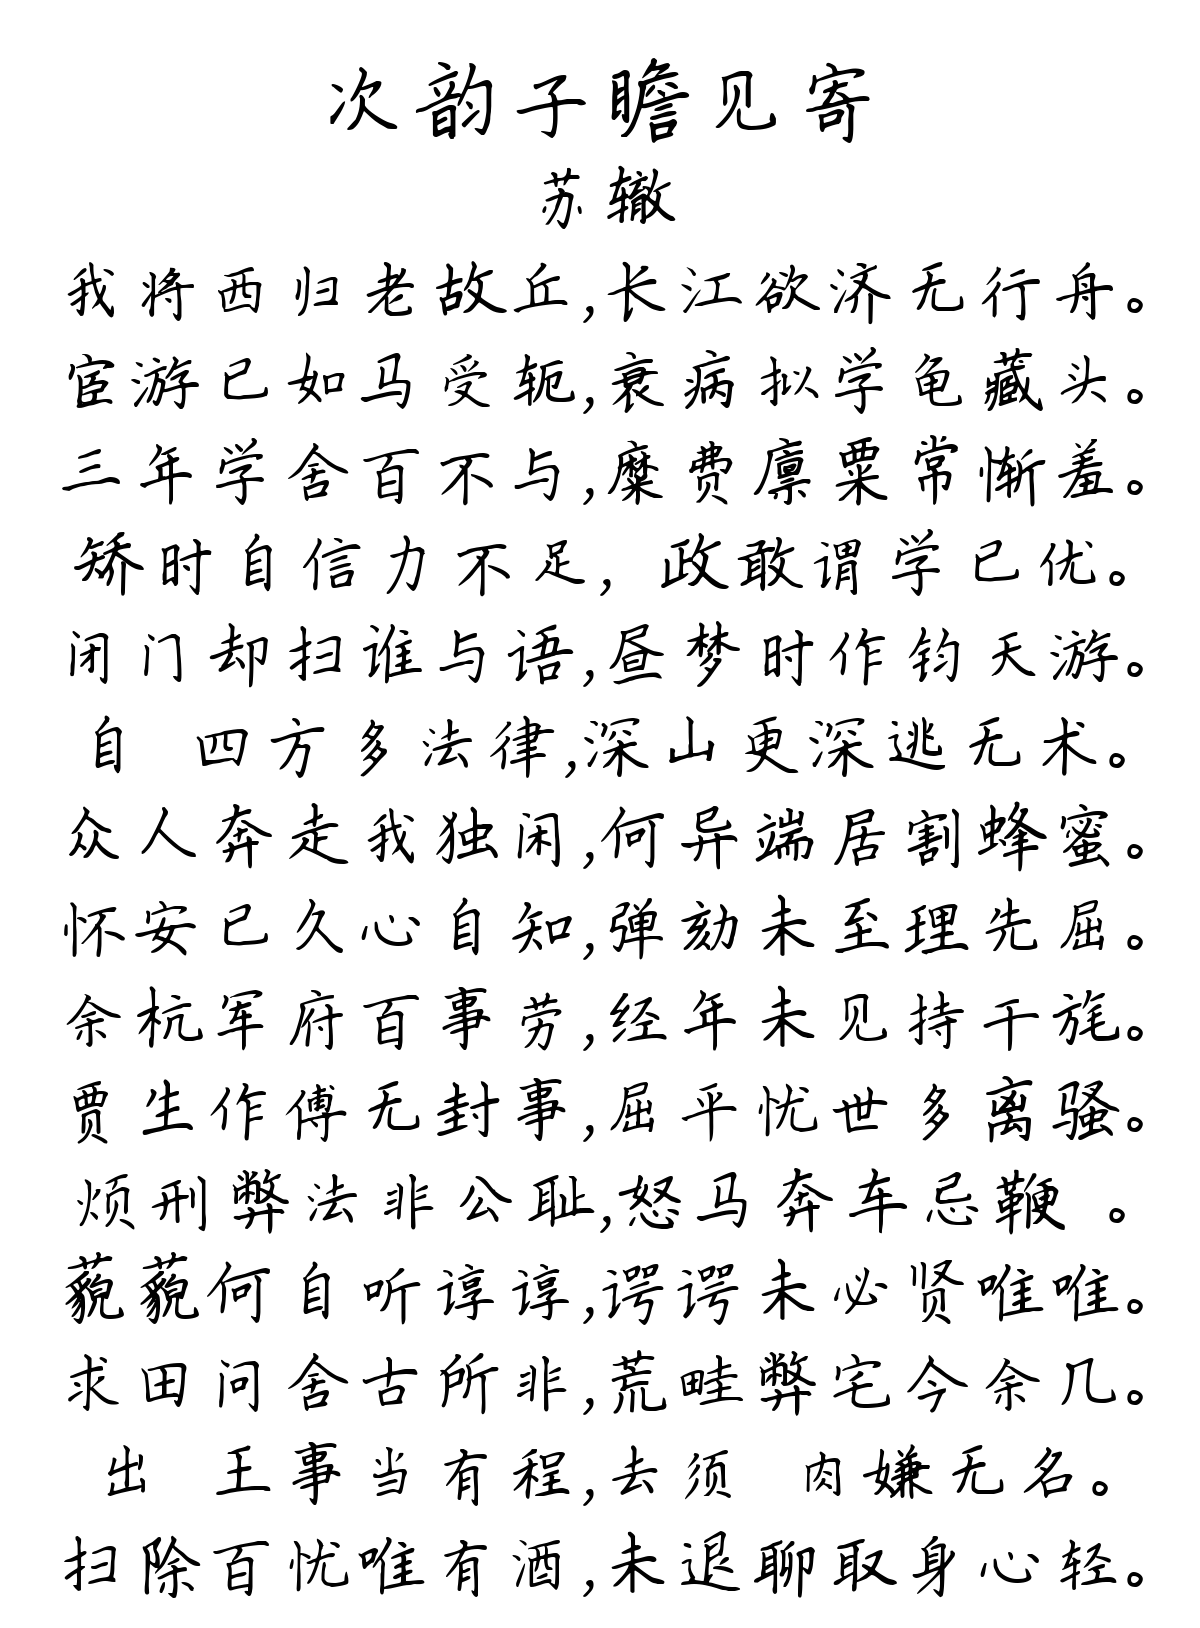 次韵子瞻见寄
苏辙
我将西归老故丘,长江欲济无行舟。
宦游已如马受轭,衰病拟学龟藏头。
三年学舍百不与,糜费廪粟常惭羞。
矫时自信力不足,政敢谓学已优。
闭门却扫谁与语,昼梦时作钧天游。
自 四方多法律,深山更深逃无术。
众人奔走我独闲,何异端居割蜂蜜。
怀安已久心自知,弹劾未至理先屈。
余杭军府百事劳,经年未见持干旄。
贾生作傅无封事,屈平忧世多离骚。
烦刑弊法非公耻,怒马奔车忌鞭 。
藐藐何自听谆谆,谔谔未必贤唯唯。
求田问舍古所非,荒畦弊宅今余几。
出 王事当有程,去须 肉嫌无名。
扫除百忧唯有酒,未退聊取身心轻。